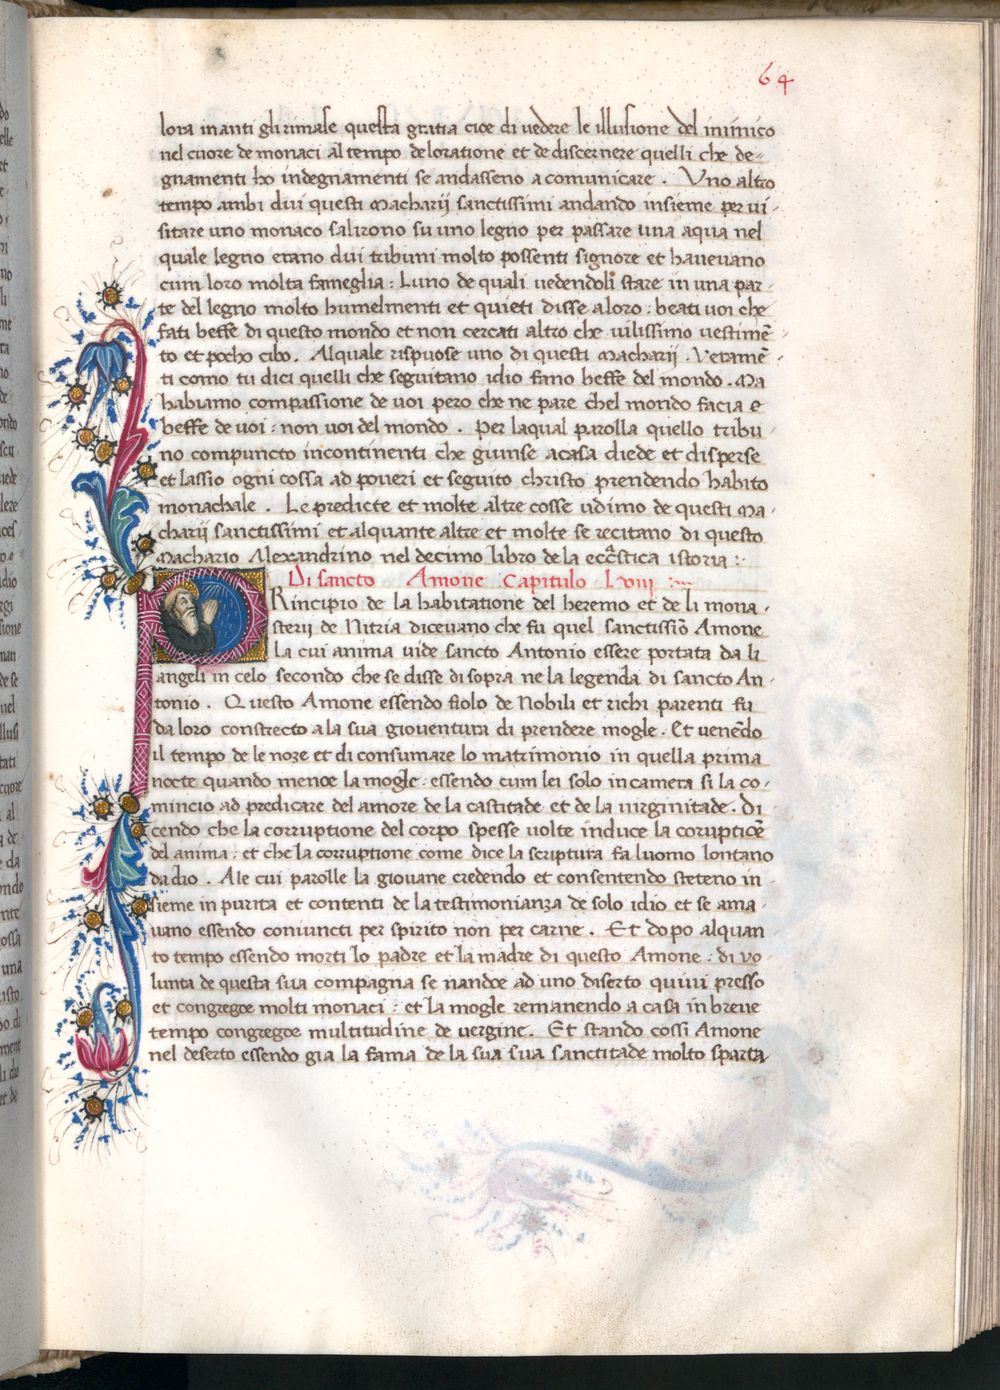 64
lora inanti gli rimase questa gratia cioe di vedere le illusione del inimico
nel cuore de monaci al tempo de loratione et de discernere quelli che de=
gnamenti ho indegnamenti se andasseno a comunicare . Uno altro
tempo ambi dui questi Macharij sanctissimi andando insieme per vi-
sitare uno monaco salirono su uno legno per passare una aqua nel
quale legno erano dui tribuni molto possenti signore et havevano
cum loro molta fameglia : Luno de quali vedendoli stare in una par-
te del legno molto humelmenti et quieti disse a loro : beati voi che
fati beffe di questo mondo et non cercati altro che vilissimo vestimē-
to et pocho cibo . Al quale rispuose uno di questi Macharij . Veramē-
ti como tu dici quelli che seguitano idio fano beffe del mondo . Ma
habiamo compassione de voi pero che ne pare chel mondo facia e
beffe de voi : non voi del mondo . Per laqual parolla quello tribu-
no compuncto incontinenti che giunse acasa diede et disperse
et lassio ogni cossa ad poveri et seguito christo prendendo habito
monachale . Le predicte et molte altre cosse udimo de questi Ma-
charij sanctissimi et alquante altre et molte se recitano di questo
Machario Alexandrino nel decimo libro de la eccl̄stica istoria :.
Di sancto Amone Capitulo Lviij
PRincipio de la habitatione del heremo et de li mona-
sterij de Nitria dicevano che fu quel sanctissīo Amone
la cui anima vide sancto Antonio essere portata da li
angeli in celo secondo che se disse di sopra ne la legenda di sancto An-
tonio . Questo Amone essendo fiolo de Nobili et richi parenti fu
da loro constrecto a la sua gioventura di prendere mogle . Et venēdo
il tempo de le noze et di consumare lo matrimonio in quella prima
nocte quando menoe la mogle : essendo cum lei solo in camera si la co-
mincio ad predicare del amore de la castitade et de la virginitade . Di
cendo che la corruptione del corpo spesse volte induce la coruptiōe
del anima : et che la corruptione come dice la scriptura fa luomo lontano
da dio . Ale cui parolle la giovane credendo et consentendo steteno in-
sieme in purita et contenti de la testimonianza de solo idio et se ama-
vano essendo coniuncti per spirito non per carne . Et dopo alquan
to tempo essendo morti lo padre et la madre di questo Amone : di vo-
lunta de questa sua compagna se nandoe ad uno diserto quivi presso
et congregoe molti monaci : et la mogle remanendo a casa in breve
tempo congregoe multitudine de vergine . Et stando cossi Amone
nel deserto essendo gia la fama de la sua sua sanctitade molto sparta